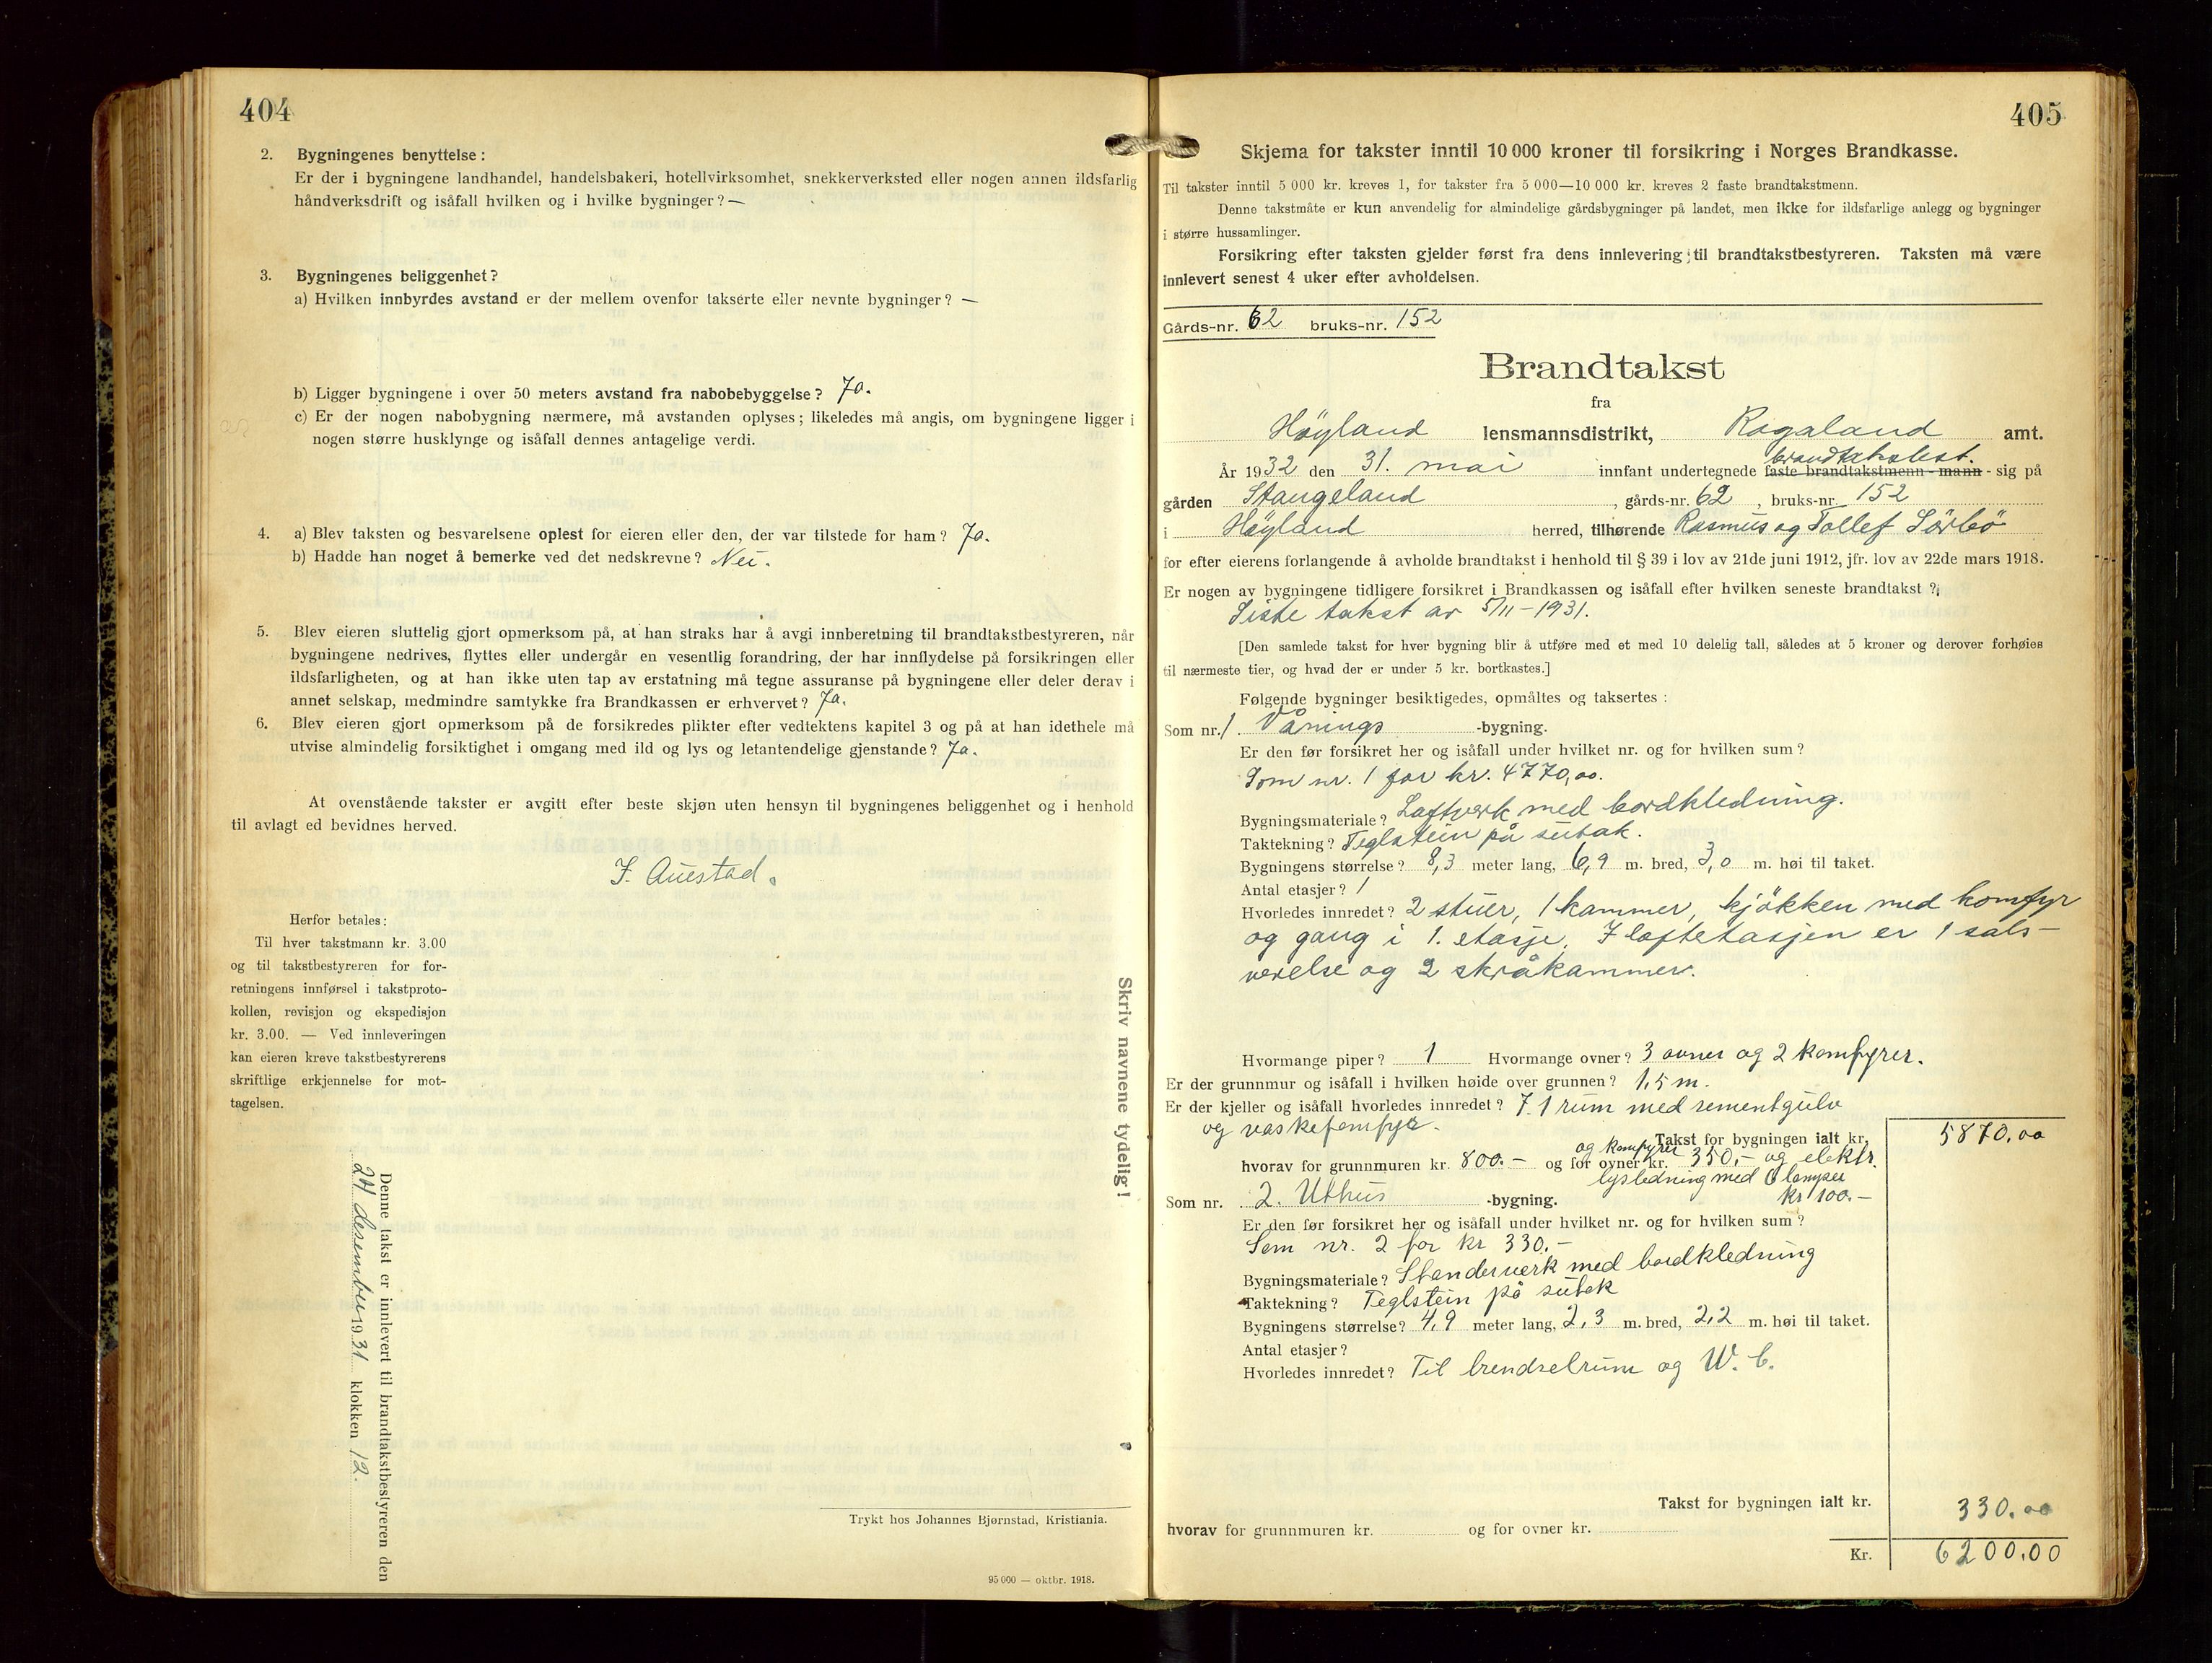 404
2. Bygningenes benyttelse:
Er der i bygningene landhandel, handelsbakeri, hotellvirksomhet, snekkerverksted eller nogen annen ildsfarlig
håndverksdrift og isåfall hvilken og i hvilke bygninger? —
3. Bygningenes beliggenhet?
a) Hvilken innbyrdes avstand er der mellem ovenfor takserte eller nevnte bygninger? —
b) Ligger bygningene i over 50 meters avstand fra nabobebyggelse? Ja.
c) Er der nogen nabobygning nærmere, må avstanden oplyses; likeledes må angis, om bygningene ligger i
nogen større husklynge og isåfall dennes antagelige verdi.
4. a) Blev taksten og besvarelsene oplest for eieren eller den, der var tilstede for ham? Ja.
b) Hadde han noget å bemerke ved det nedskrevne? Nei.
5. Blev eieren sluttelig gjort opmerksom på, at han straks har å avgi innberetning til brandtakstbestyreren, når
bygningene nedrives, flyttes eller undergår en vesentlig forandring, der har innflydelse på forsikringen eller
ildsfarligheten, og at han ikke uten tap av erstatning må tegne assuranse på bygningene eller deler derav i
annet selskap, medmindre samtykke fra Brandkassen er erhvervet? Ja.
6. Blev eieren gjort opmerksom på de forsikredes plikter efter vedtektens kapitel 3 og på at han idethele må
utvise almindelig forsiktighet i omgang med ild og lys og letantendelige gjenstande? Ja.
At ovenstående takster er avgitt efter beste skjøn uten hensyn til bygningenes beliggenhet og i henhold
til avlagt ed bevidnes herved.
J. Auestad.
Herfor betales:
Til hver takstmann kr. 3.00
og til takstbestyreren for for-
retningens innførsel i takstproto-
kollen, revisjon og ekspedisjon
kr. 3.00. — Ved innleveringen
kan eieren kreve takstbestyrerens
skriftlige erkjennelse for mot-
tagelsen.
Denne takst er innlevert til brandtakstbestyreren den
24 desember 1931 klokken 12.
Skriv navnene tydelig!
Trykt hos Johannes Bjørnstad, Kristiania.
95 000 — oktbr. 1918.
405
Skjema for takster inntil 10 000 kroner til forsikring i Norges Brandkasse.
Til takster inntil 5 000 kr. kreves 1, for takster fra 5 000—10 000 kr. kreves 2 faste brandtakstmenn.
Denne takstmåte er kun anvendelig for almindelige gårdsbygninger på landet, men ikke for ildsfarlige anlegg og bygninger
i større hussamlinger.
Forsikring efter taksten gjelder først fra dens innlevering til brandtakstbestyreren. Taksten må være
innlevert senest 4 uker efter avholdelsen.
Gårds-nr. 62 bruks-nr. 152
Brandtakst
fra
Høyland lensmannsdistrikt, Rogaland amt.
brandtakstbest.
År 1932 den 31. mai innfant undertegnede faste brandtakstmenn - mann - sig på
gården Stangeland, gårds-nr. 62, bruks-nr. 152
i Høyland herred, tilhørende Rasmus og Tollef Sörbö
for efter eierens forlangende å avholde brandtakst i henhold til § 39 i lov av 21de juni 1912, jfr. lov av 22de mars 1918.
Er nogen av bygningene tidligere forsikret i Brandkassen og isåfall efter hvilken seneste brandtakst?
Siste takst av 5/11-1931.
[Den samlede takst for hver bygning blir å utføre med et med 10 delelig tall, således at 5 kroner og derover forhøies
til nærmeste tier, og hvad der er under 5 kr. bortkastes.]
Følgende bygninger besiktigedes, opmåltes og taksertes:
Som nr. 1 Vånings -bygning.
Er den før forsikret her og isåfall under hvilket nr. og for hvilken sum?
Som nr. 1 for kr. 4770,00.
Bygningsmateriale? Laftverk med bordkledning.
Taktekning? Teglstein på sutak.
Bygningens størrelse? 8,3 meter lang, 6,9 m. bred, 3,0 m. høi til taket.
Antal etasjer? 1
Hvorledes innredet? 2 stuer, 1 kammer, kjökken med komfyr
og gang i 1. etasje. I loftetasjen er 1 sals-
verelse og 2 skråkammer.
Hvormange piper? 1 Hvormange ovner? 3 ovner og 2 komfyrer.
Er der grunnmur og isåfall i hvilken høide over grunnen? 1,5 m.
Er der kjeller og isåfall hvorledes innredet? J. 1 rum med sementgulv
og vaskekomfyr.
Takst for bygningen ialt kr. 5870.00
og komfyrer
hvorav for grunnmuren kr. 800.- og for ovner kr. 350,- og elektr.
lysledning med 8 lamper
kr 100.-
Som nr. 2. Uthus -bygning.
Er den før forsikret her og isåfall under hvilket nr. og for hvilken sum?
Som nr. 2 for kr 330.-
Bygningsmateriale? Standerverk med bordkledning
Taktekning? Teglstein på sutak
Bygningens størrelse? 4,9 meter lang, 2,3 m. bred, 2,2 m. høi til taket.
Antal etasjer?
Hvorledes innredet? Til brendselrum og W. C.
Takst for bygningen ialt kr. 330.00
hvorav for grunnmuren kr. og for ovner kr.
Kr. 6200.00